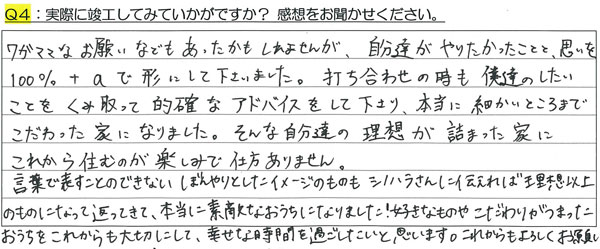 Q4：実際に竣工してみていかがですか？ 感想をお聞かせください。
ワガママなお願いなどもあったかもしれませんが、自分達がやりたかったことと、思いを
100％＋αで形にして下さいました。打ち合わせの時も僕達のしたい
ことをくみ取って的確なアドバイスをして下さり、本当に細かいところまで
こだわった家になりました。そんな自分達の理想が詰まった家に
これから住むのが楽しみで仕方ありません。
言葉で表すことのできないぼんやりとしたイメージのものもシノハラさんに伝えれば理想以上
のものになって返ってきて、本当に素敵なおうちになりました！好きなものやこだわりがつまった
おうちをこれからも大切にして、幸せな時間を過ごしたいと思います。これからもよろしくお願い